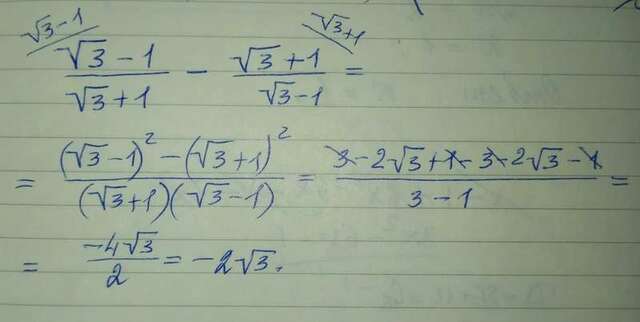 √3-1 √3+1
(√3 - 1)/(√3 + 1) - (√3 + 1)/(√3 - 1) =
= ((√3 - 1)² - (√3 + 1)²)/((√3 + 1)(√3 - 1)) = (3 - 2√3 + 1 - 3 - 2√3 - 1)/(3 - 1) =
= (-4√3)/2 = -2√3.